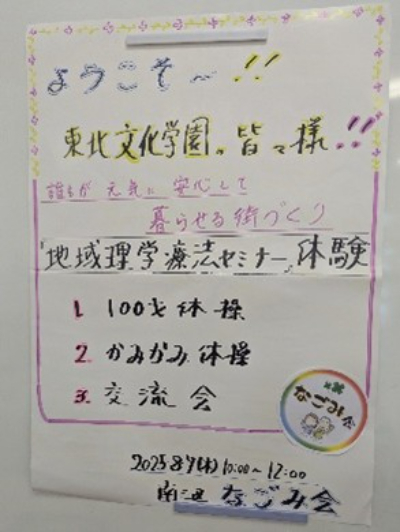 ようこそ～!!
東北文化学園の皆々様!!
誰もが 元気に 安心して
暮らせる街づくり
「地域理学療法セミナー」体験
1. 100才体操
2. かみかみ体操
3. 交流会
なごみ会
2025 8/7(木) 10:00～12:00
なごみ会